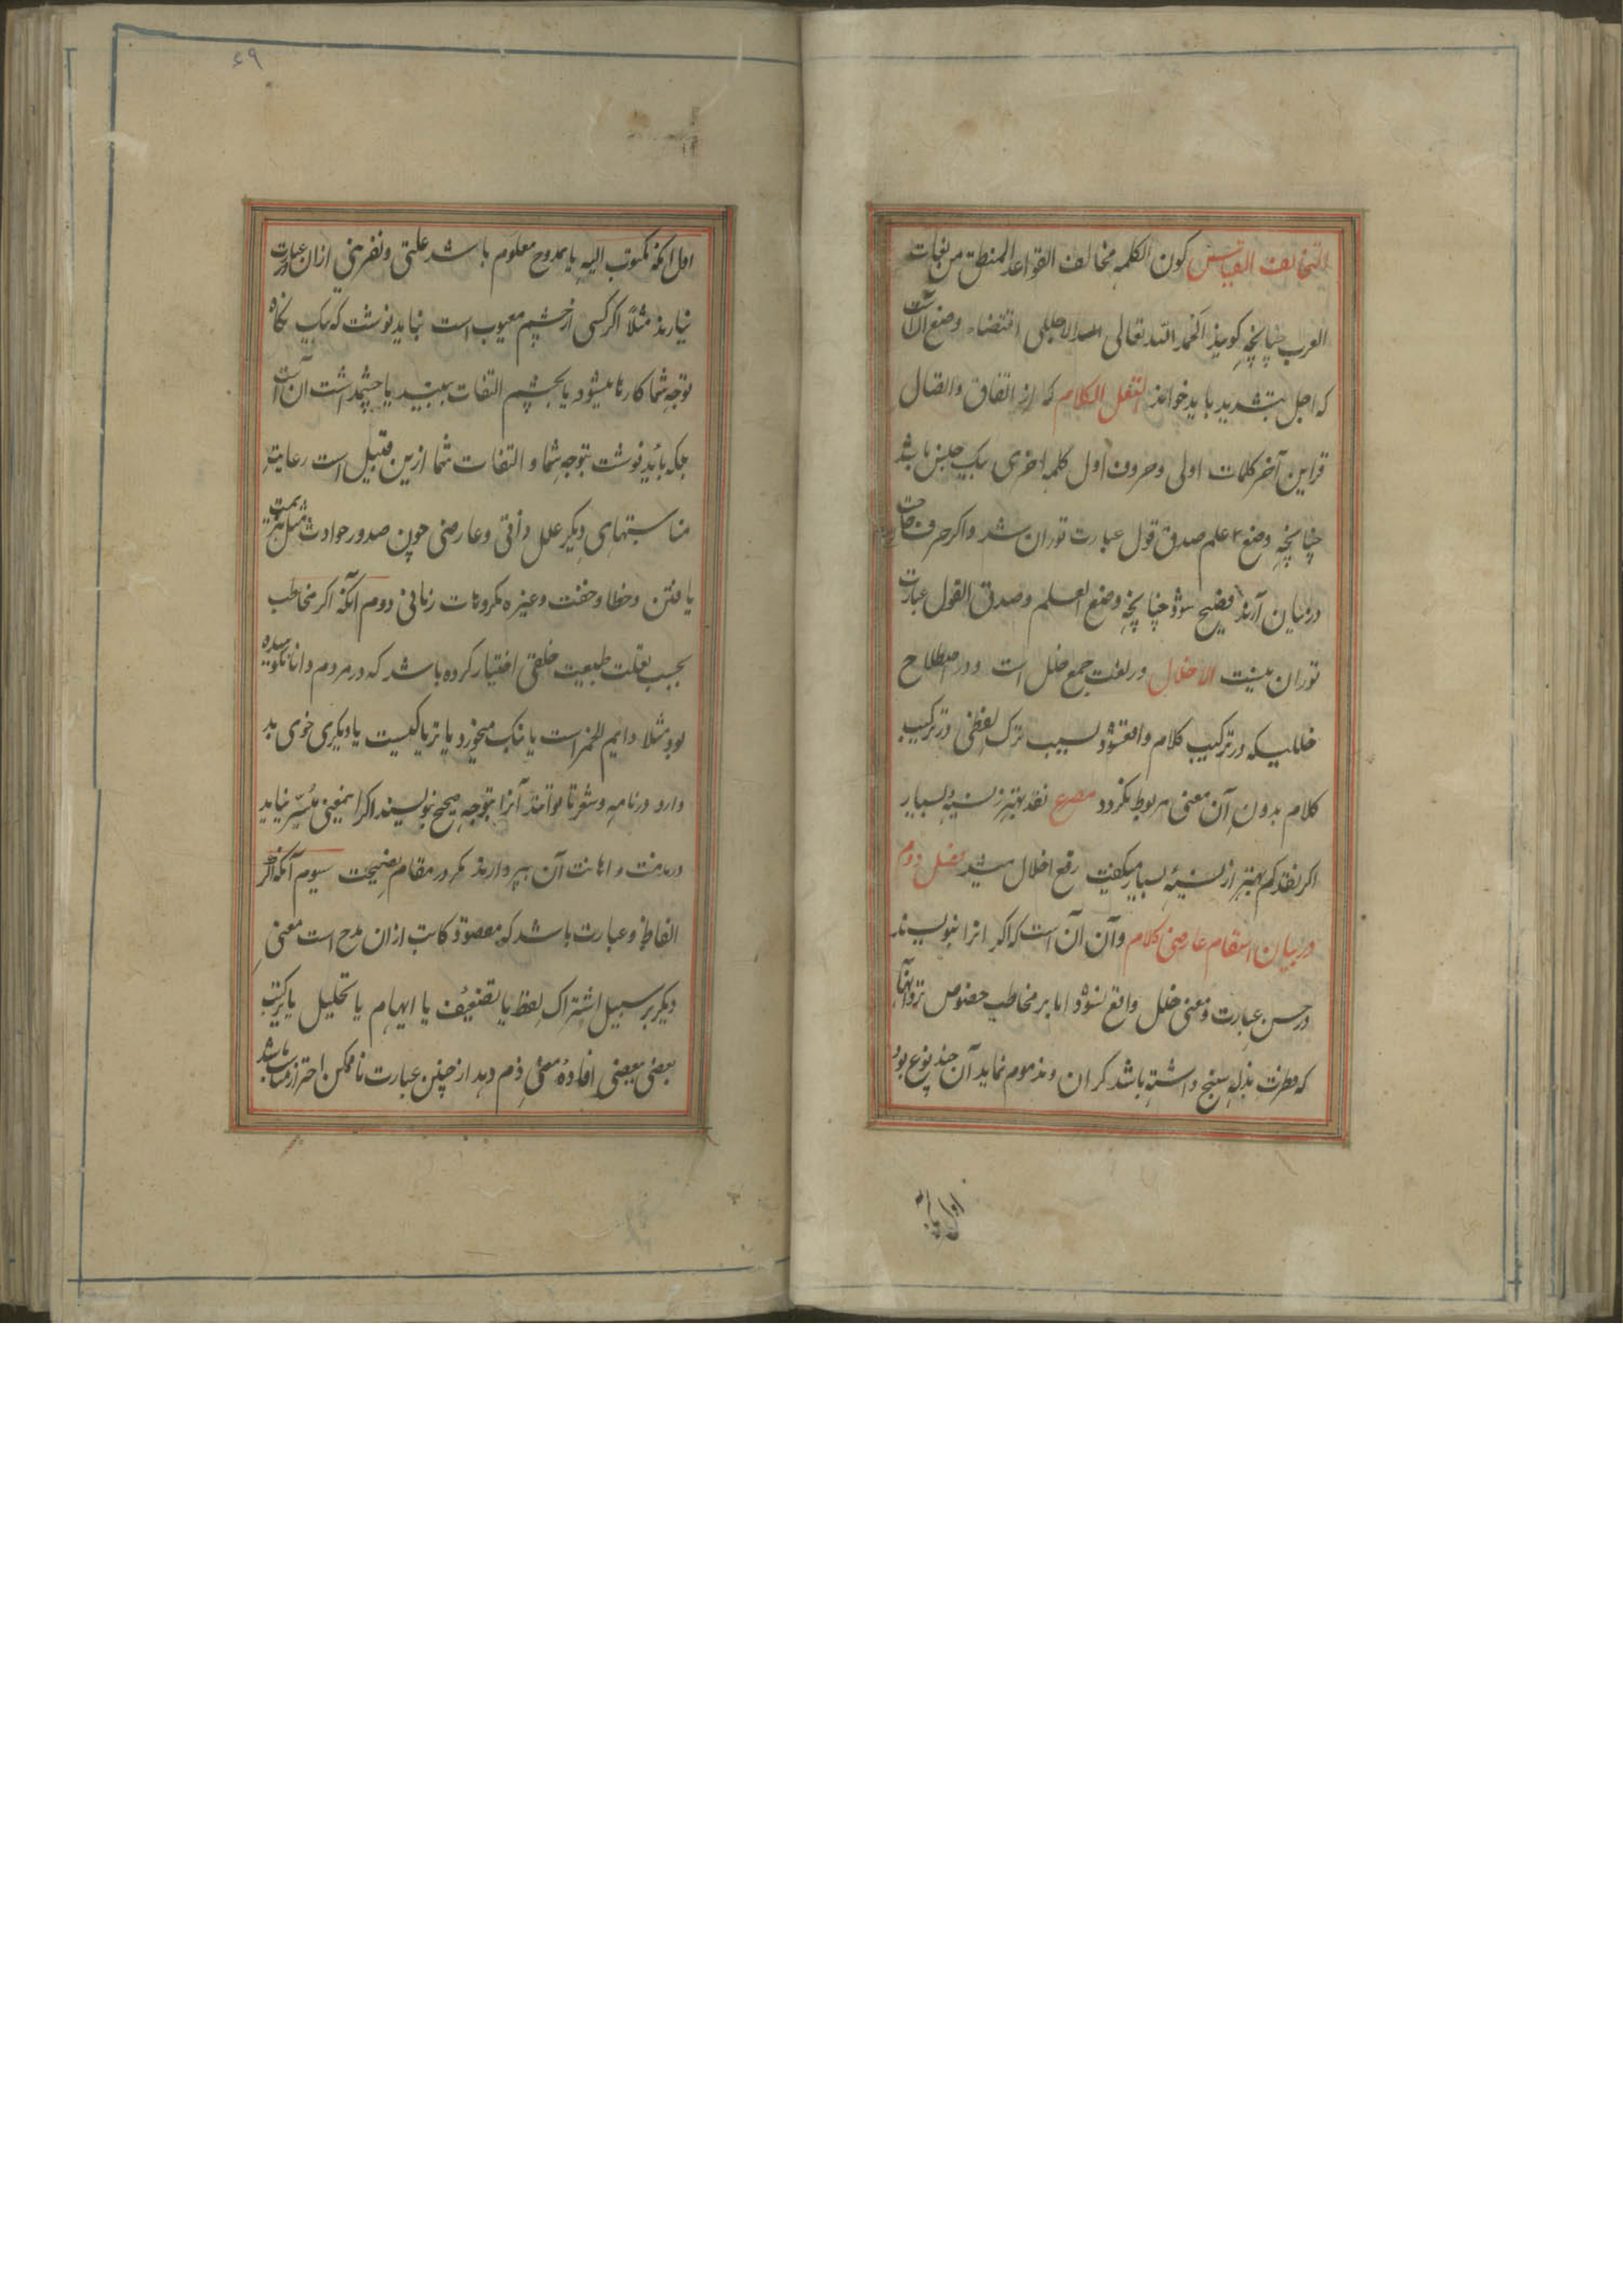 التخالف القیاس کون الکلمه مخالف القواعد المنطق من لغات
العرب چنانچه کویند الحمد الله تعالی الاجللی اقتضاء وضع آن است
که اجل بتشدید باید خواند الثقل الکلام که از اتفاق واتصال
قراین آخر کلمات اولی وحروف اول کلمه اخری یک جنس باشد
چنانچه وضع علم صدق قول عبارت توران شد واکر حرف
درمیان آرند فصیح شود چنانچه وضع العلم وصدق القول عبارت
توران نیست الاخلال در لغت جمع خلل است ودر اصطلاح
خللیکه در ترکیب کلام واقع شود بسبب ترک لفظی در ترکیب
کلام بدون آن معنی مربوط نکردد مصرع نقد بهتر نسیه بسیار
اکر نقد کم بهتر از نسیه بسیار میکفت رفع اخلال میشد فصل دوم
در بیان اسقام عارضی کلام وآن آن است که اکر انرا بنویسند
در حسن عبارت ومعنی خلل واقع نشود اما بر مخاطب خصوص نزد آنها
که فطرت بذله سنج داشته باشد کران ومذموم نماید آن چند نوع بود
اول آنکه
۶۹
اول آنکه مکتوب الیه یا ممدوح معلوم باشد علتی ونفرهنی ازان عبارت
نیارند مثلاً اکر کسی از چشم معیوب است نباید نوشت که بیک نکاه
توجه شما کارها میشود یا بچشم التفات ببینید یا چشمداشت آن است
بلکه باید نوشت بتوجه شما و التفات شما ازین قبیل است رعایت
مناسبتهای دیکر علل ذاتی وعارضی چون صدور حوادث مثل
یافتن وخطا وخفت وغیره مکروهات زمانی دوم آنکه اکر مخاطب
بحسب طبیعت خلقی اختیار کرده باشد که در مردم دانا نکوهیده
بود مثلا دایم الخمر است یا بنک میخورد یا تریاکیست یا دیکری خوی بد
دارد در نامه وشعر تا توانند آنرا بتوجه صحیح بنویسند اکر اینمعنی میسر نیاید
در مذمت و اهانت آن نپردازند مکر در مقام نصیحت سیوم آنکه اکر
الفاظ وعبارت باشد که مقصود کاتب ازان مدح است معنی
دیکر بر سبیل اشتراک لفظ یا تصحیف یا ایهام یا تحلیل یا ترکیب
بعضی ببعضی افاده معنی ذم دهد از چنین عبارت تا ممکن احتراز مناسب باشد